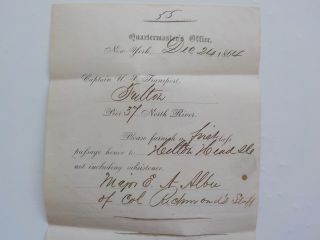 55
Quartermaster's Office,
New York, Dec 24 1864
Captain U. S. Transport,
Fulton
Pier 37 North River.
Please furnish in first class
passage hence to Hilton Head
not including subsistence.
Major E. A.
of Col Richmond's Staff